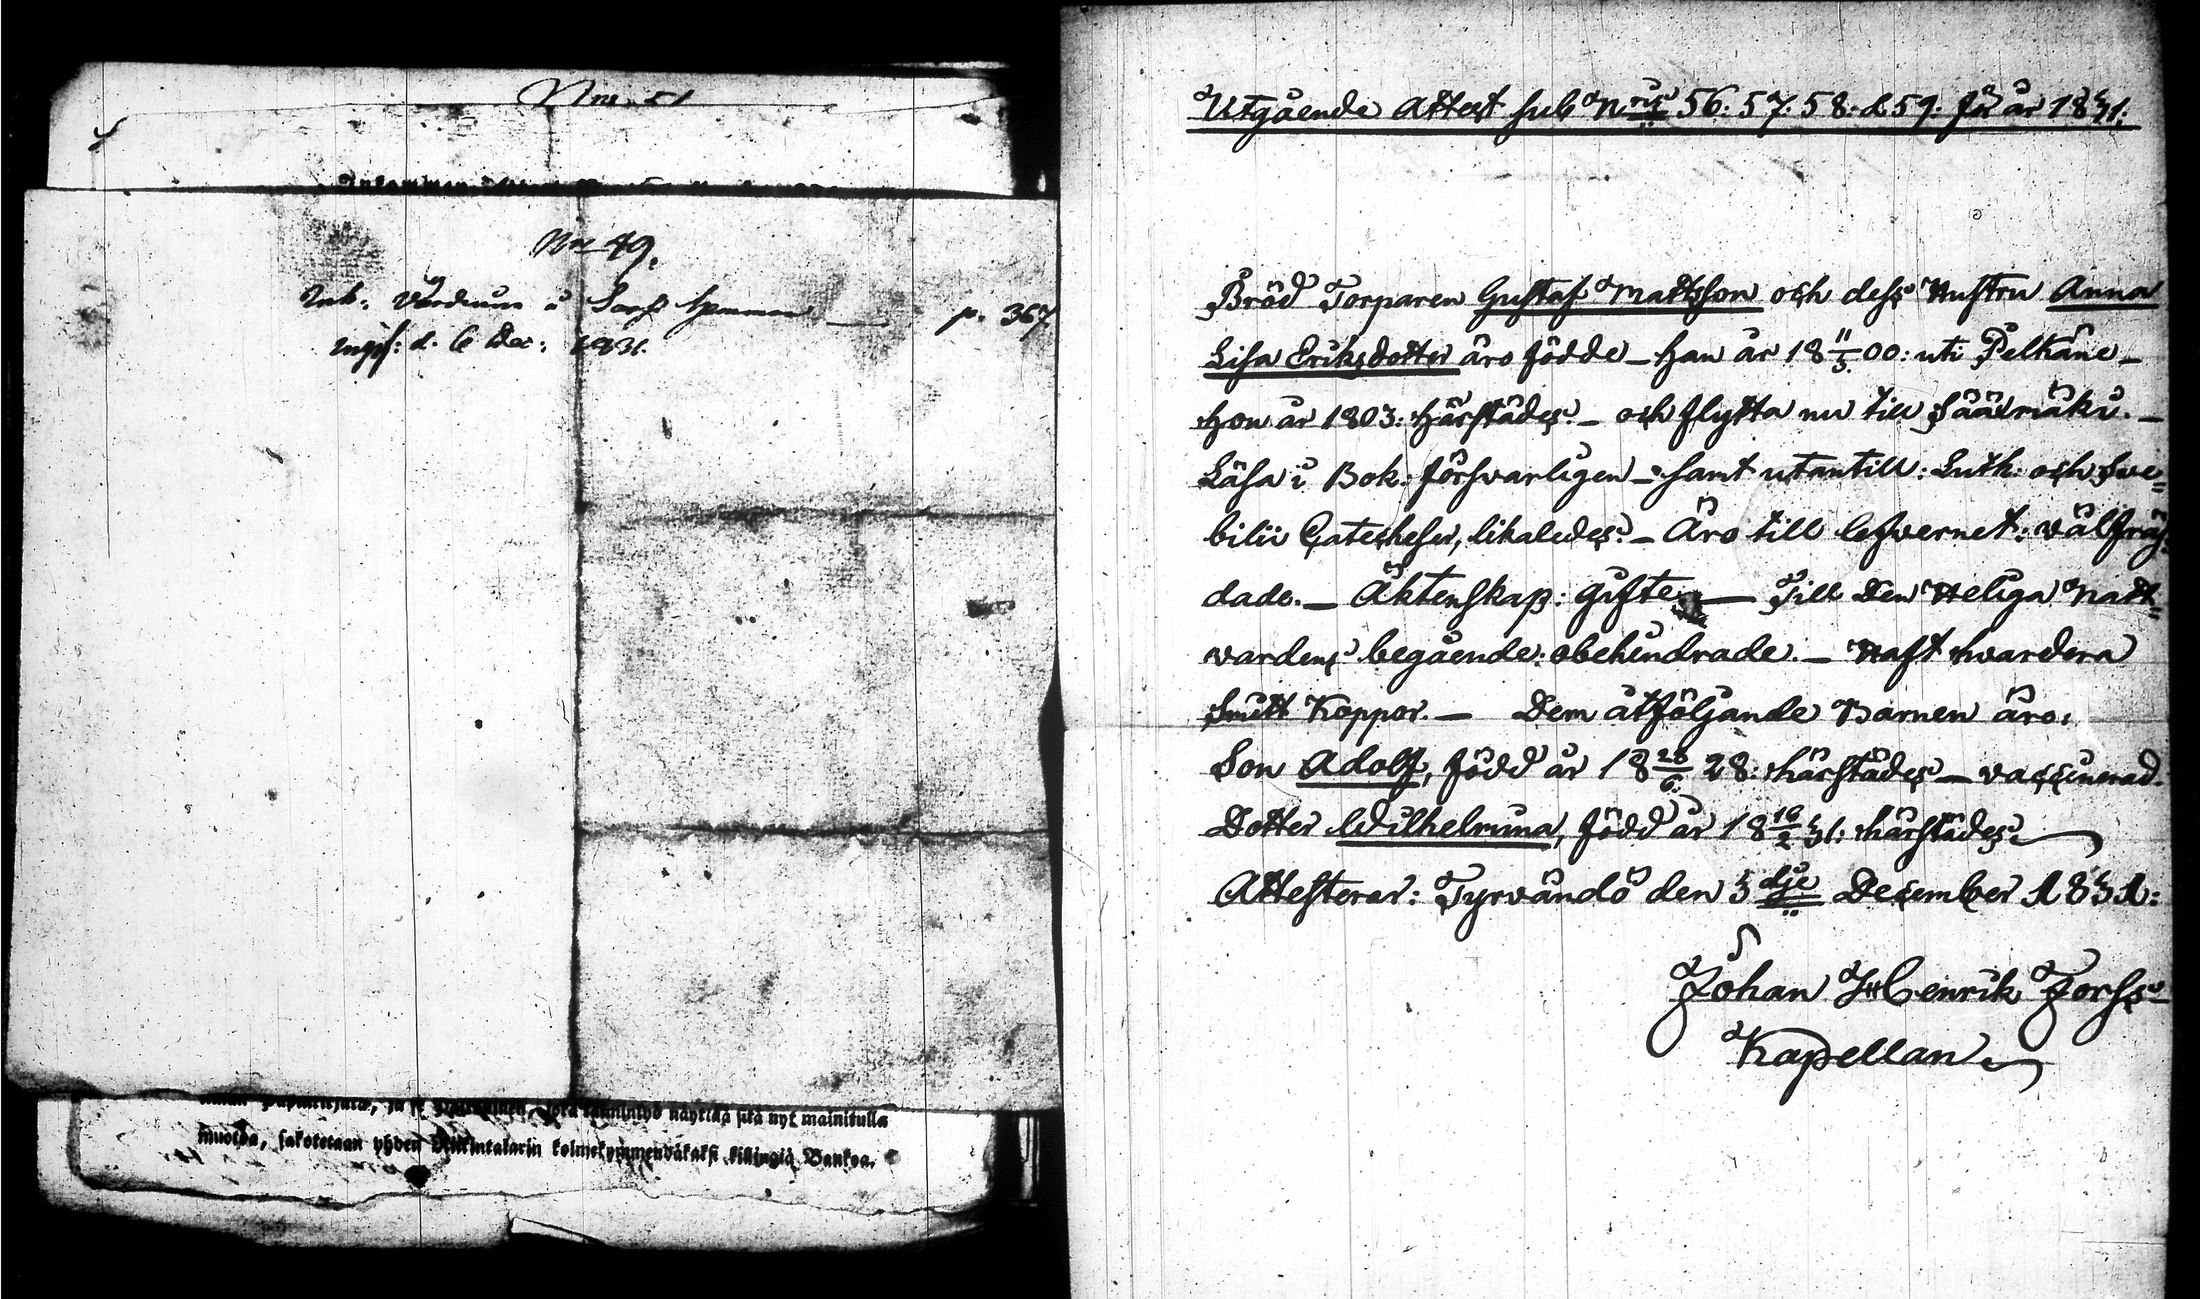 Nro 51
Nro 49.
Ink. Vårdruna i p. 367.
d. 6 Dec: 1831.
näyttää sitä nyt mainitulla
muotoa, sakotetaan yhden Riikintalarin kolmekymmendäkaksi killingiä Bankoa.
Utgående Attest sub Nris 56: 57: 58: & 59: för år 1831:
Bråd Torparen Gustaf Mattsson och dess Hustru Anna
Lisa Eriksdotter äro födde _ han år 18 11/3 00: uti Pelkäne _
hon år 1803: härstädes _ och flytta nu till Säärmäki. _
Läsa i Bok: försvarligen _ samt utantill: Luth: och Sve=
bilii Catecheser, likaledes. _ Äro till lefvernet: välfräj=
dade. _ Äktenskap: Gifte _ Till Den Heliga Natt=
vardens begående: obehindrade. _ Haft hvardera
Smitt Koppor. _ Dem åtföljande Barnen äro:
Son Adolf, född år 18 28/6 28: härstädes _ vaccinerad.
Dotter Wilhelmina, född år 18 16/2 31: härstädes
Attesterar: Tyrvändö den 3dje December 1831:
Johan Henrik Forss
Kapellan